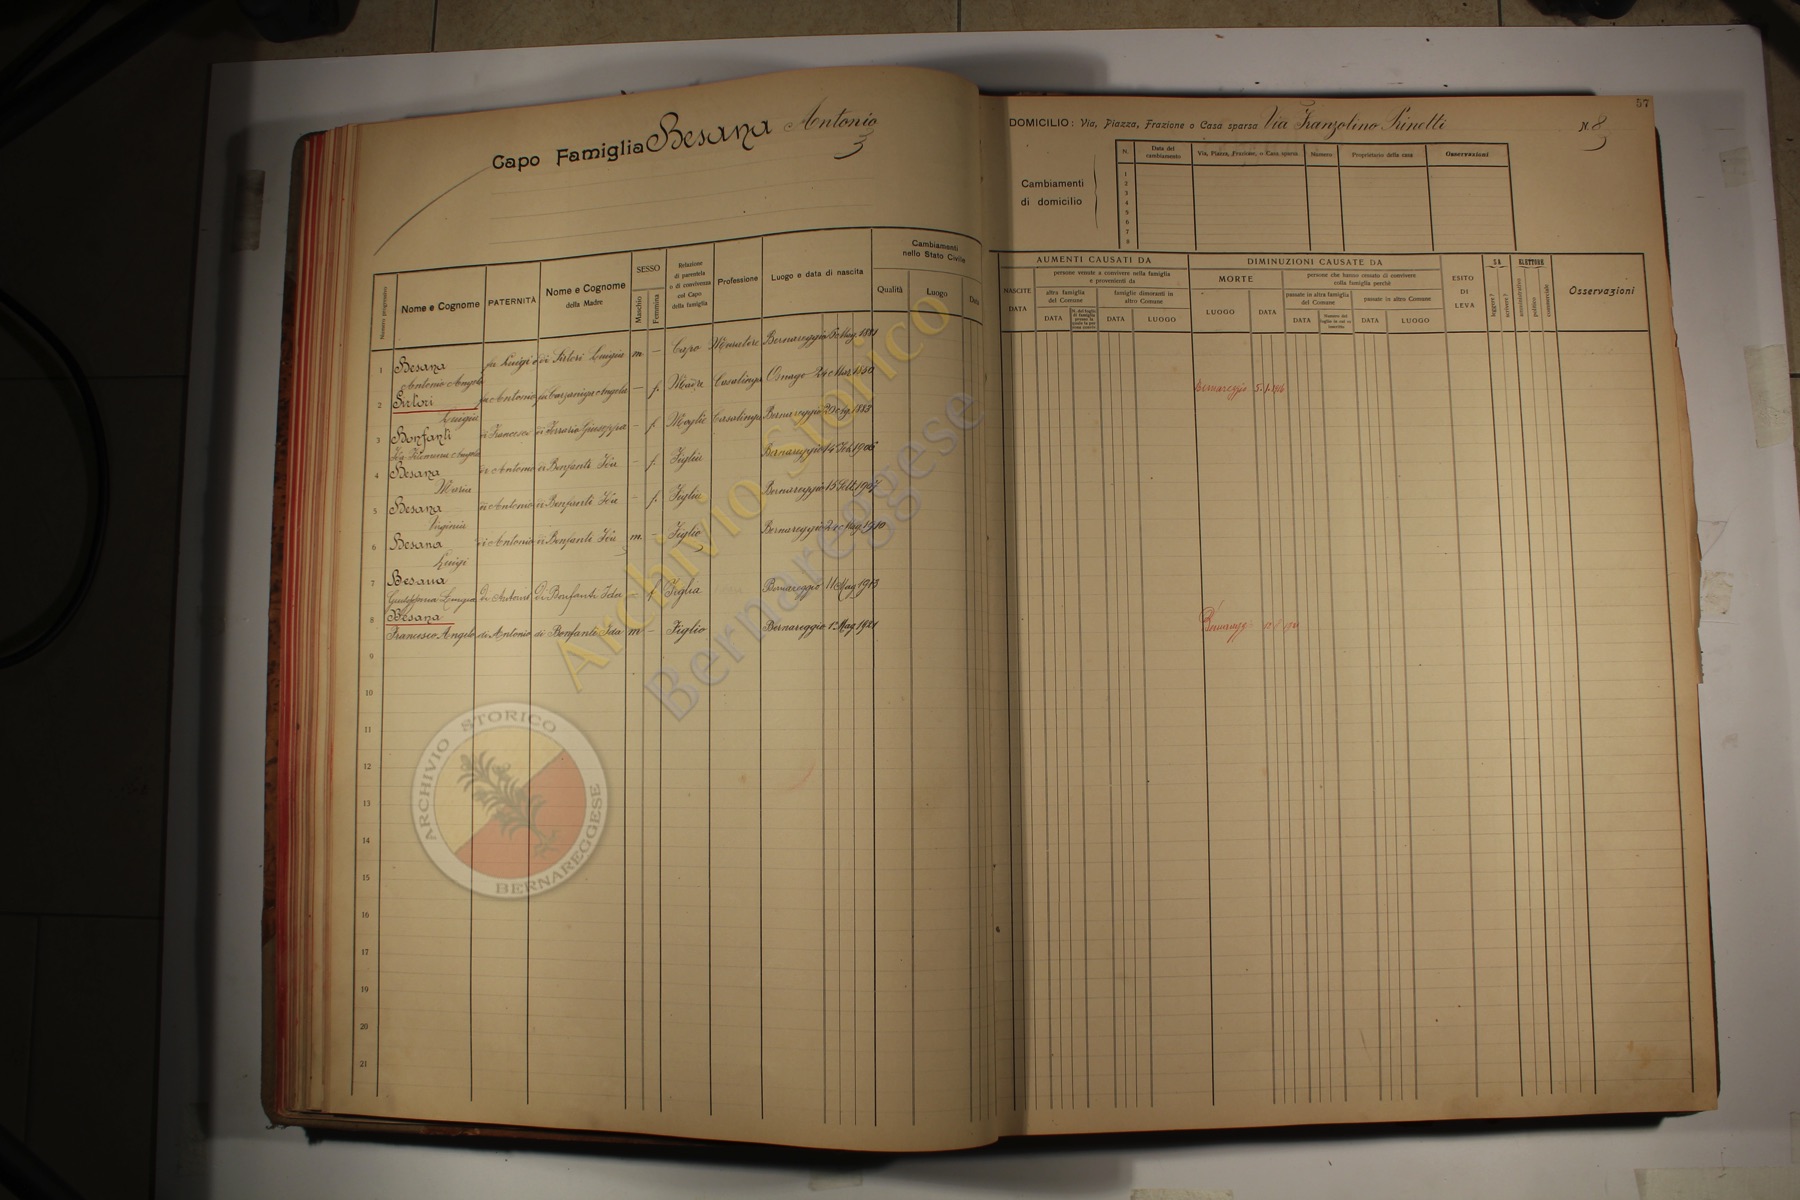 57
Capo Famiglia Besana Antonio
3
DOMICILIO: Via, Piazza, Frazione o Casa sparsa Via Franzolino Prinetti N. 8
Cambiamenti
di domicilio
N.
Data del
cambiamento
Via, Piazza, Frazione, o Casa sparsa
Numero
Proprietario della casa
Osservazioni
1
2
3
4
5
6
7
8
Numero progressivo
Nome e Cognome
PATERNITÀ
Nome e Cognome
della Madre
SESSO
Maschio
Femmina
Relazione
di parentela
o di convivenza
col Capo
della famiglia
Professione
Luogo e data di nascita
Cambiamenti
nello Stato Civile
Qualità
Luogo
Data
AUMENTI CAUSATI DA
NASCITE
DATA
persone venute a convivere nella famiglia
e provenienti da
altra famiglia
del Comune
DATA
famiglie dimoranti in
altro Comune
DATA
LUOGO
DIMINUZIONI CAUSATE DA
MORTE
LUOGO
DATA
persone che hanno cessato di convivere
colla famiglia perchè
passate in altra famiglia
del Comune
DATA
passate in altro Comune
DATA
LUOGO
ESITO
DI
LEVA
SA
leggere?
scrivere?
ELETTORE
amministrativo
politico
commerciale
Osservazioni
1 Besana fu Luigi di Sirtori Luigia m — Capo Muratore Bernareggio 1881
Antonio Angelo
2 Sirtori fu Antonio fu Carzaniga Angela — f. Madre Casalinga Osnago 24 Mar. 1840 Bernareggio 5.1.
Luigia
3 Bonfanti di Francesco di Ferrario Giuseppa — f. Moglie Casalinga Bernareggio 1883
Ida Angela
4 Besana di Antonio di Bonfanti Ida — f. Figlia Bernareggio 14 Feb. 1906
Maria
5 Besana di Antonio di Bonfanti Ida — f. Figlia Bernareggio 15 Sett. 1907
Virginia
6 Besana di Antonio di Bonfanti Ida m. — Figlio Bernareggio 2 Mag. 1910
Luigi
7 Besana
Luigia di Antonio Di Bonfanti Ida — f Figlia Bernareggio 11 Mag 1913
8 Besana
Francesco Angelo di Antonio di Bonfanti Ida m — Figlio Bernareggio 1° Mag. 1921
9
10
11
12
13
14
15
16
17
19
20
21
Archivio Storico
Bernareggese
ARCHIVIO STORICO
BERNAREGGESE